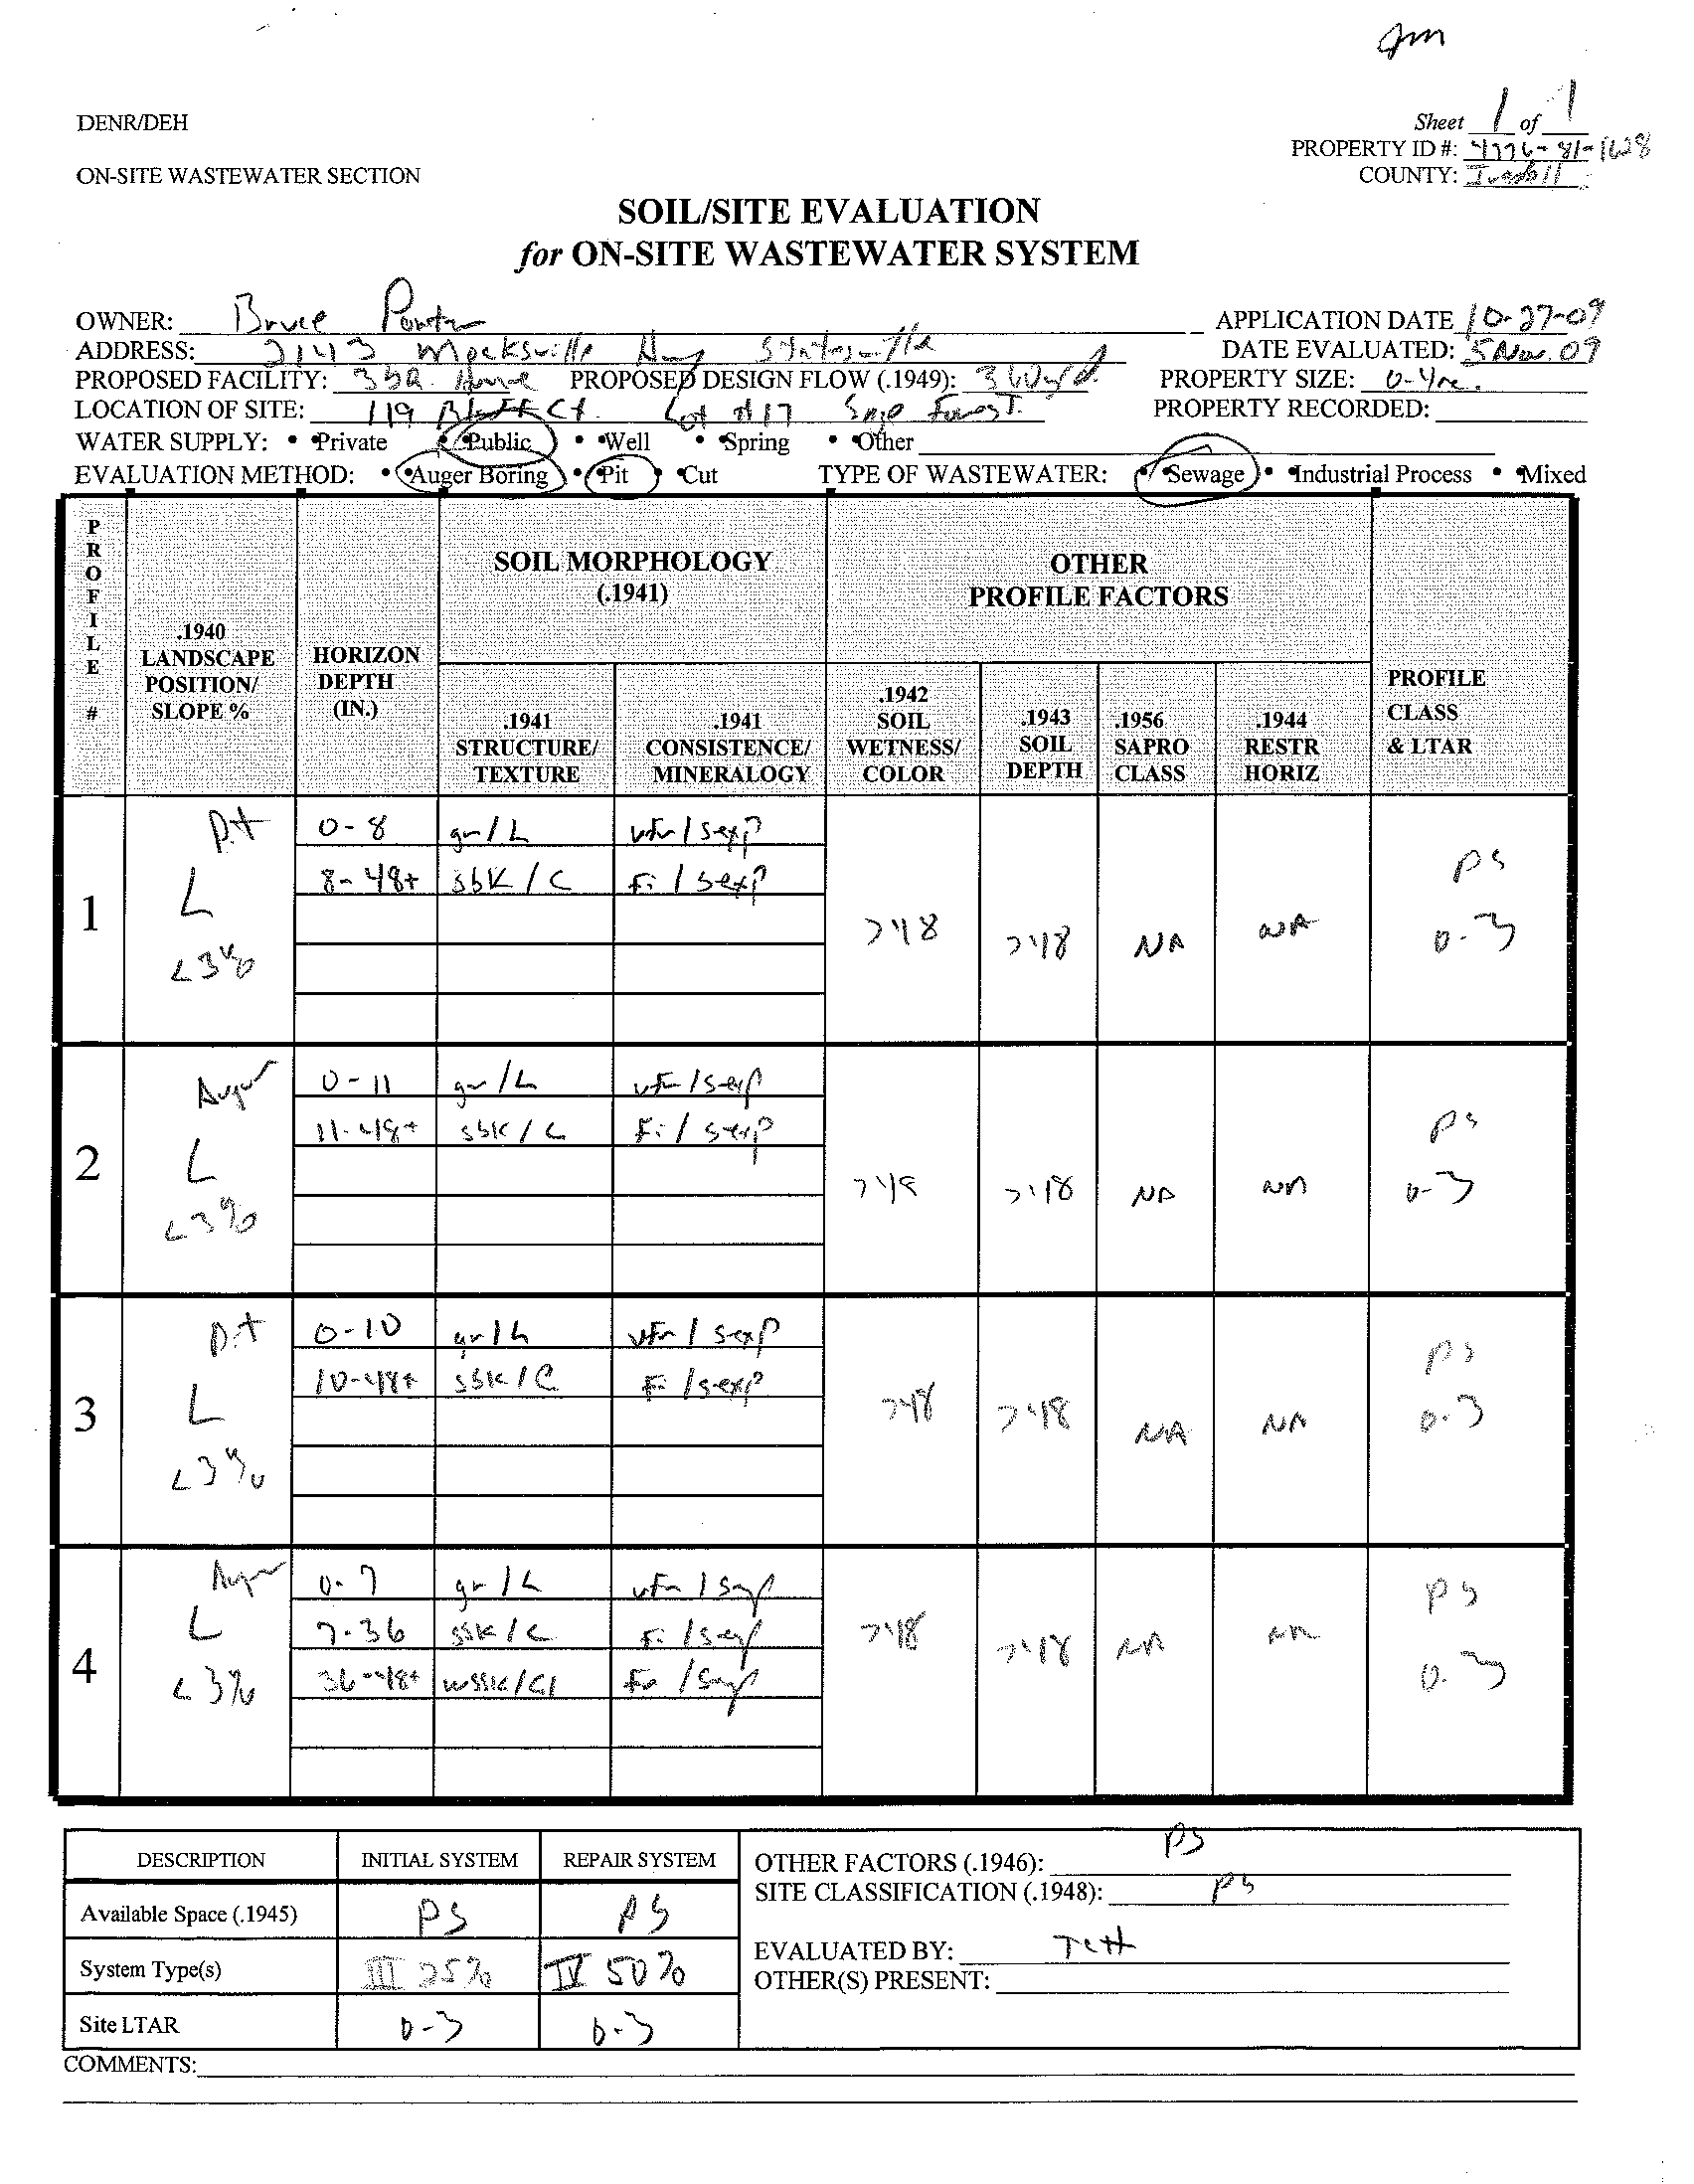 DENR/DEH
Sheet 1 of 1
PROPERTY ID #: 4776-81-1628
ON-SITE WASTEWATER SECTION
COUNTY: Iredell
SOIL/SITE EVALUATION
for ON-SITE WASTEWATER SYSTEM
OWNER: Bruce
APPLICATION DATE 10-27-09
ADDRESS: 2143 Mocksville Hwy Statesville
DATE EVALUATED: 5 Nov. 09
PROPOSED FACILITY: 3 BR. House PROPOSED DESIGN FLOW (.1949): 360 gpd.
PROPERTY SIZE: 0.4ac.
LOCATION OF SITE: 119 Bluff Ct. Lot #17 Sage Forest.
PROPERTY RECORDED:
WATER SUPPLY: • •Private • •Public • •Well • •Spring • •Other
EVALUATION METHOD: • •Auger Boring • •Pit • •Cut TYPE OF WASTEWATER: • •Sewage • •Industrial Process • •Mixed
PROFILE #
.1940 LANDSCAPE POSITION/ SLOPE %
HORIZON DEPTH (IN.)
SOIL MORPHOLOGY (.1941)
.1941 STRUCTURE/ TEXTURE
.1941 CONSISTENCE/ MINERALOGY
OTHER PROFILE FACTORS
.1942 SOIL WETNESS/ COLOR
.1943 SOIL DEPTH
.1956 SAPRO CLASS
.1944 RESTR HORIZ
PROFILE CLASS & LTAR
1
Pit L <3%
0-8 gr/L vfr/sexp
8-48+ sbk/C Fi/sexp
>48 >48 NA NA PS 0.3
2
Auger L <3%
0-11 gr/L vfr/sexp
11-48+ sbk/C Fi/sexp
>48 >48 NA NA PS 0.3
3
Pit L <3%
0-10 gr/L vfr/sexp
10-48+ sbk/C Fi/sexp
>48 >48 NA NA PS 0.3
4
Auger L <3%
0-7 gr/L vfr/sexp
7-36 sbk/C Fi/sexp
36-48+ wsbk/Cl Fr/sexp
>48 >48 NA NA PS 0.3
DESCRIPTION INITIAL SYSTEM REPAIR SYSTEM
Available Space (.1945) PS PS
System Type(s) III 25% IV 50%
Site LTAR 0.3 0.3
OTHER FACTORS (.1946): PS
SITE CLASSIFICATION (.1948): PS
EVALUATED BY:
OTHER(S) PRESENT:
COMMENTS: